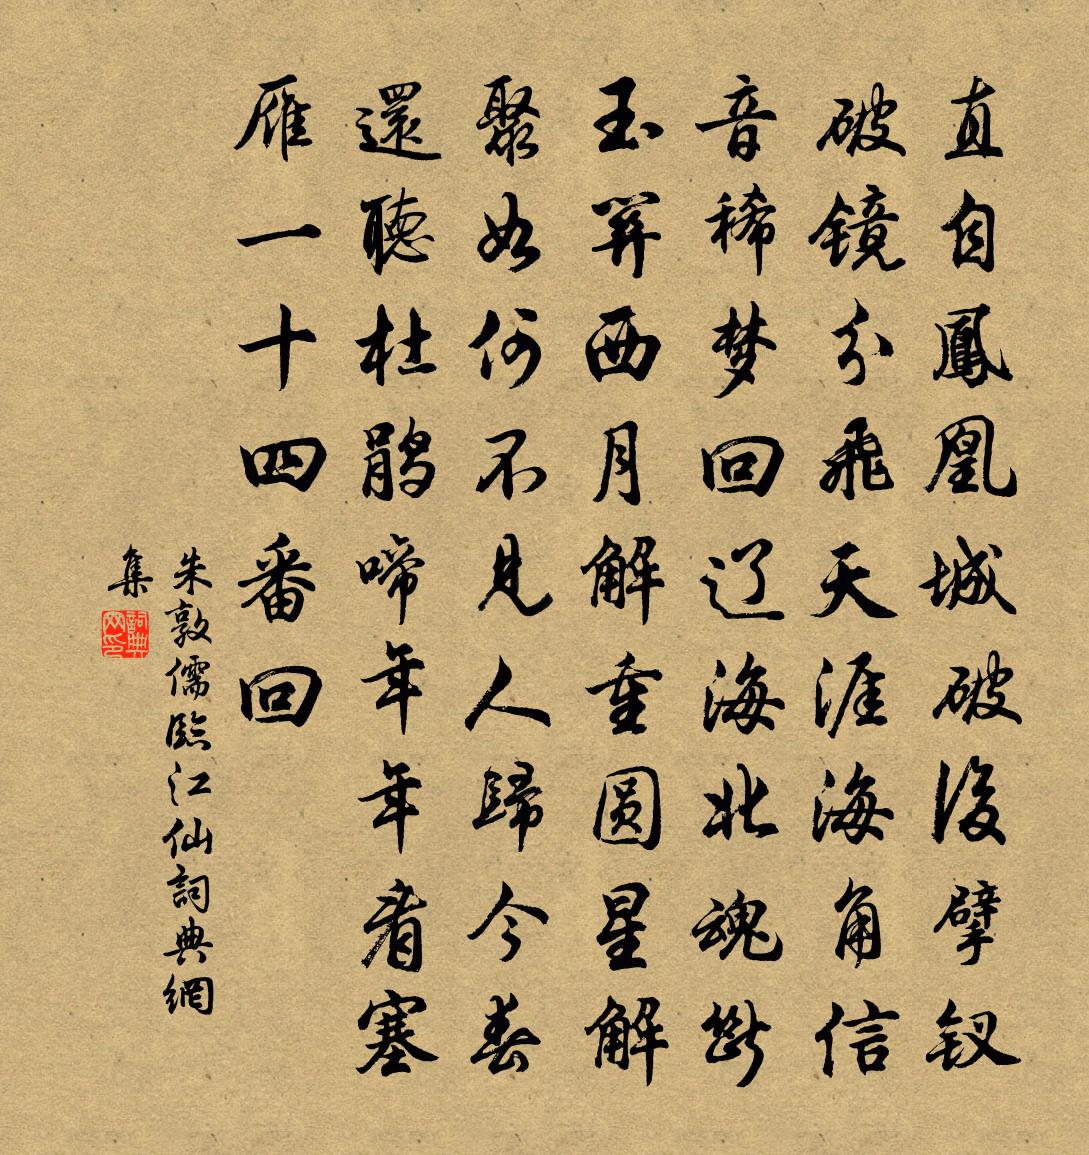 直自鳳凰城破後擘钗
破镜分飛天涯海角信
音稀梦回辽海北魂斷
玉關西月解重圆星解
聚如何不見人歸今春
還聽杜鹃啼年年看塞
雁一十四番回
朱敦儒臨江仙詞典網
集
詞典网印